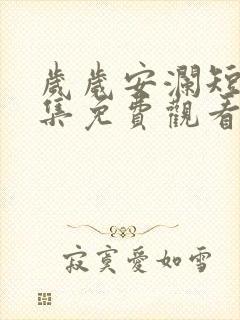 歲歲安瀾短
集免費觀看
寂寞愛如雪